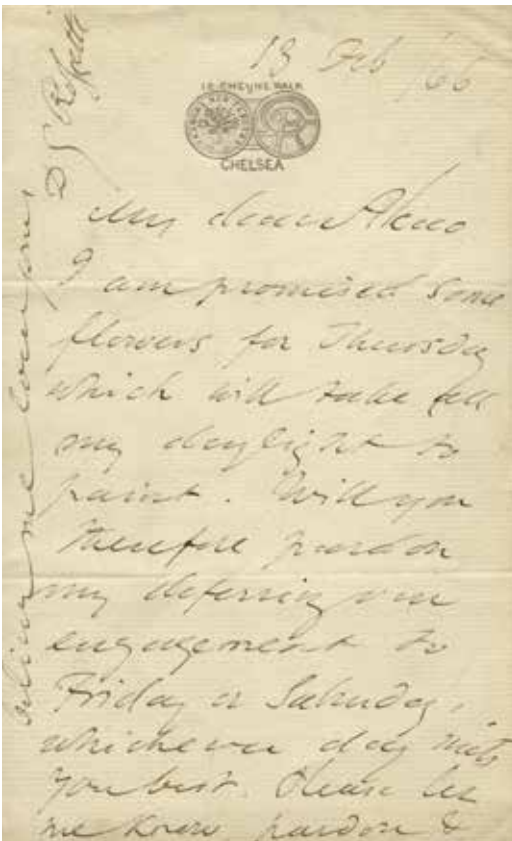 13 Feb /66
16 CHEYNE WALK
CHELSEA
My dear
I am promised some
flowers for Thursday
which will take all
my daylight to
paint. Will you
therefore pardon
my deferring our
engagement to
Friday or Saturday,
whichever day suits
you best. Please let
me know, pardon &
believe me ever yours
D G Rossetti